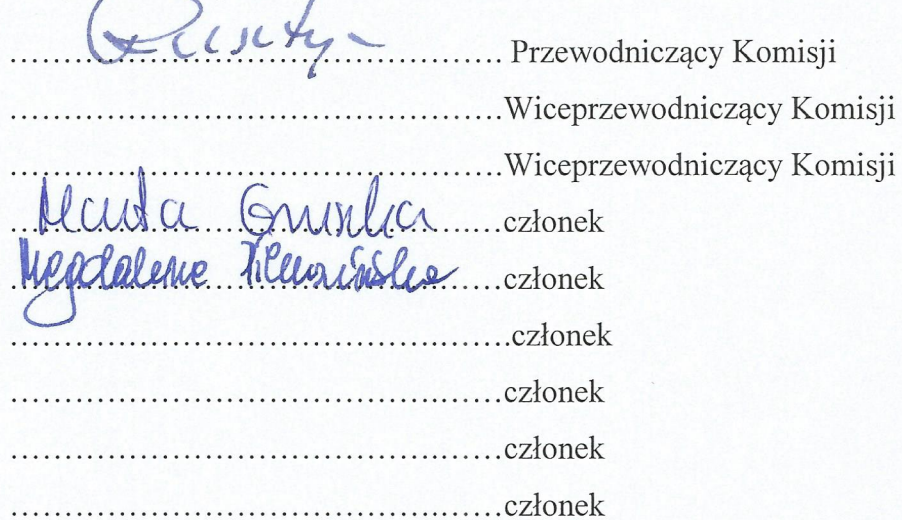 .................................................... Przewodniczący Komisji
....................................................Wiceprzewodniczący Komisji
....................................................Wiceprzewodniczący Komisji
Marta członek
Magdalena członek
.....................................................członek
....................................................członek
....................................................członek
....................................................członek